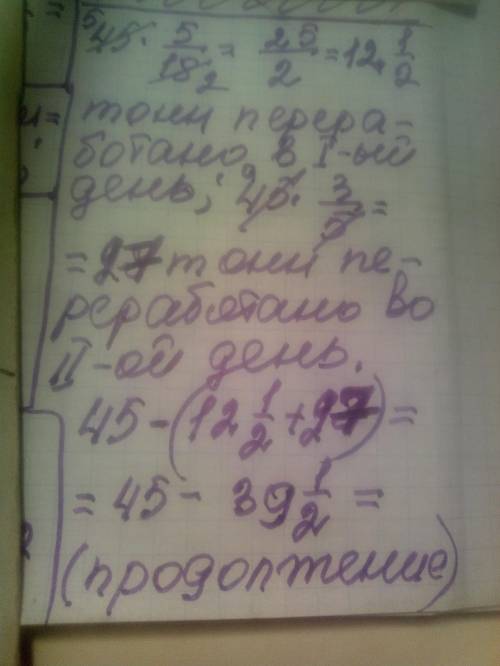 ⁵45 · 5/18₂ = 25/2 = 12 1/2
тонн перера-
ботано в I-ый
день; ⁹45¹ · 3/5 =
= 27 тонн пе-
реработано во
II-ой день.
45 - (12 1/2 + 27) =
= 45 - 39 1/2 =
(продолжение)